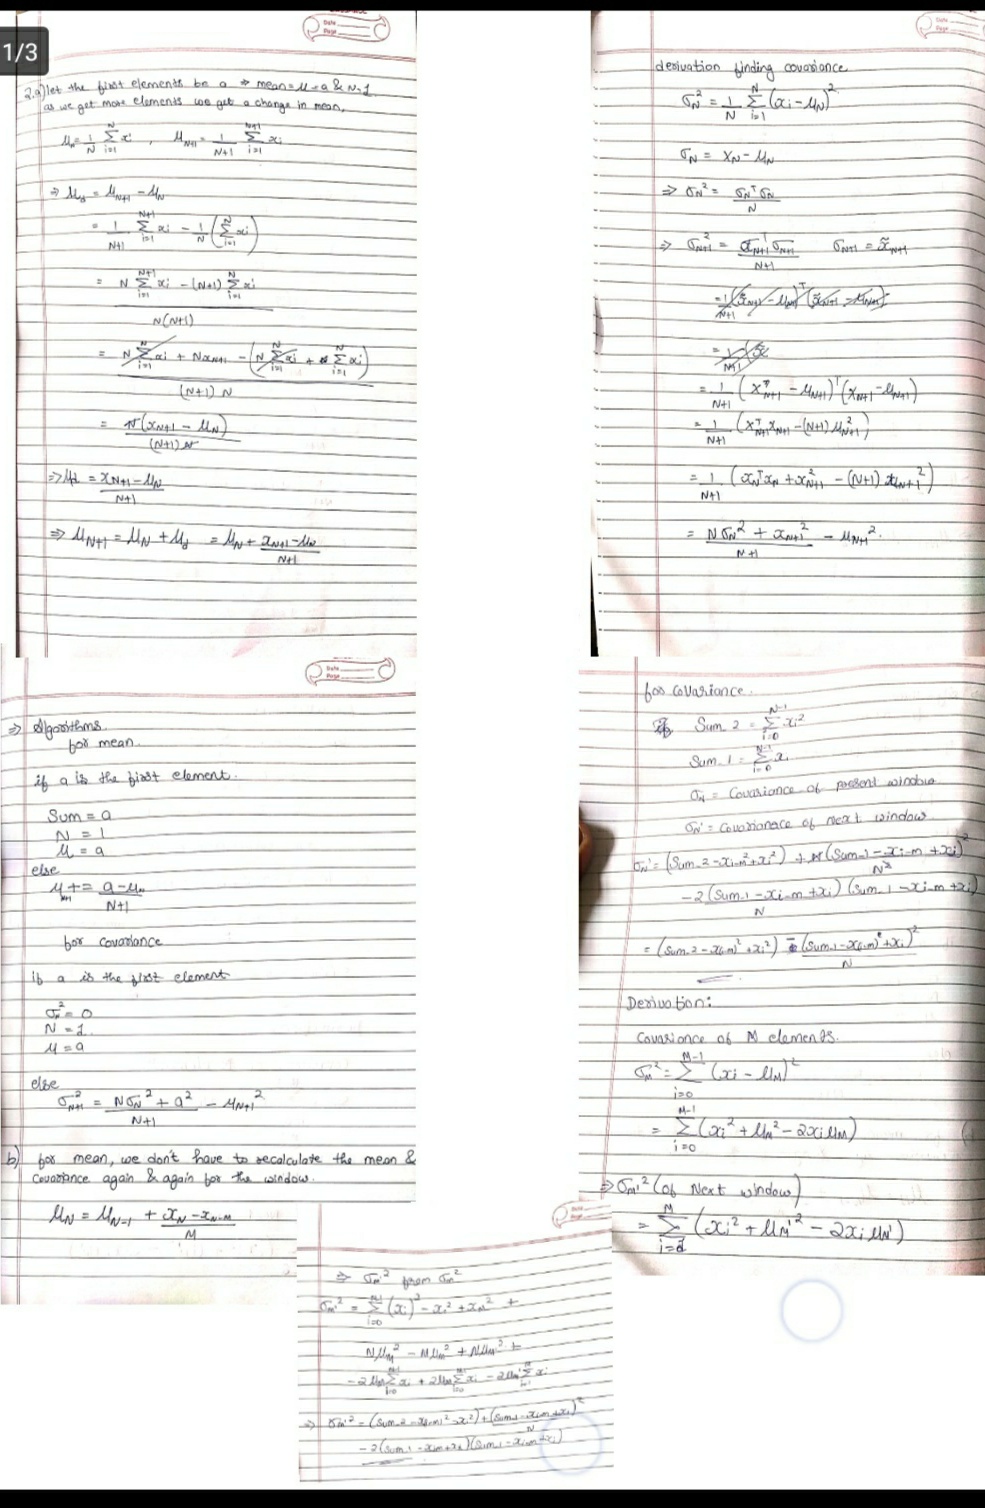 1/3
Date
Page
2.a) let the first elements be a ⇒ mean = μ = a & N=1
as we get more elements we get a change in mean,
μ_N = 1/N Σ_{i=1}^{N} x_i , μ_{N+1} = 1/(N+1) Σ_{i=1}^{N+1} x_i
⇒ μ_d = μ_{N+1} - μ_N
= 1/(N+1) Σ_{i=1}^{N+1} x_i - 1/N (Σ_{i=1}^{N} x_i)
= (N Σ_{i=1}^{N+1} x_i - (N+1) Σ_{i=1}^{N} x_i) / N(N+1)
= (N Σ_{i=1}^{N} x_i + N x_{N+1} - (N Σ_{i=1}^{N} x_i + Σ_{i=1}^{N} x_i)) / (N+1) N
= N(x_{N+1} - μ_N) / (N+1) N
⇒ μ_d = (x_{N+1} - μ_N) / (N+1)
⇒ μ_{N+1} = μ_N + μ_d = μ_N + (x_{N+1} - μ_N) / (N+1)
Date
Page
derivation finding covariance
σ_N² = 1/N Σ_{i=1}^{N} (x_i - μ_N)²
σ_N = X_N - μ_N
⇒ σ_N² = σ_N^T σ_N / N
⇒ σ_{N+1}² = σ_{N+1}^T σ_{N+1} / (N+1)
= 1/(N+1) (X_{N+1}^T - μ_{N+1})^T (X_{N+1} - μ_{N+1})
= 1/(N+1) (X_{N+1}^T X_{N+1} - (N+1) μ_{N+1}²)
= 1/(N+1) (X_N^T X_N + x_{N+1}² - (N+1) μ_{N+1}²)
= (N σ_N² + x_{N+1}²) / (N+1) - μ_{N+1}².
Date
Page
⇒ Algorithms.
for mean.
if a is the first element.
Sum = a
N = 1
μ = a
else
μ_{N+1} += (a - μ_N) / (N+1)
for covariance
if a is the first element
σ_N² = 0
N = 1.
μ = a
else
σ_{N+1}² = (N σ_N² + a²) / (N+1) - μ_{N+1}²
b) for mean, we don't have to recalculate the mean &
covariance again & again for the window.
μ_N = μ_{N-1} + (x_N - x_{N-M}) / M
for covariance.
Sum_2 = Σ_{i=0}^{N-1} x_i²
Sum_1 = Σ_{i=0}^{N-1} x_i
σ_N = Covariance of present window
σ_N' = Covarianace of next window
σ_N' = (Sum_2 - x_{i-m}² + x_i²) + N (Sum_1 - x_{i-m} + x_i)² / N²
- 2 (Sum_1 - x_{i-m} + x_i) (Sum_1 - x_{i-m} + x_i) / N
= (Sum_2 - x_{(i-m)}² + x_i²) - (Sum_1 - x_{(i-m)} + x_i)² / N
Derivation:
Covariance of M elements.
σ_M² = Σ_{i=0}^{M-1} (x_i - μ_M)²
= Σ_{i=0}^{M-1} (x_i² + μ_M² - 2x_i μ_M)
⇒ σ_M'² (of Next window)
= Σ_{i=1}^{M} (x_i² + μ_M'² - 2x_i μ_M')
⇒ σ_m'² from σ_m²
σ_m'² = Σ_{i=0}^{N-1} (x_i)² - x_i² + x_M² +
N μ_M² - N μ_M² + N μ_M'² +
- 2 μ_M Σ x_i + 2 μ_M Σ x_i - 2 μ_M' Σ x_i
⇒ σ_m'² = (Sum_2 - x_{(i-m)}² - x²) + (Sum_1 - x_{i-m} + x_i)² / N
- 2 (Sum_1 - x_{i-m} + x_i) (Sum_1 - x_{i-m} + x_i)